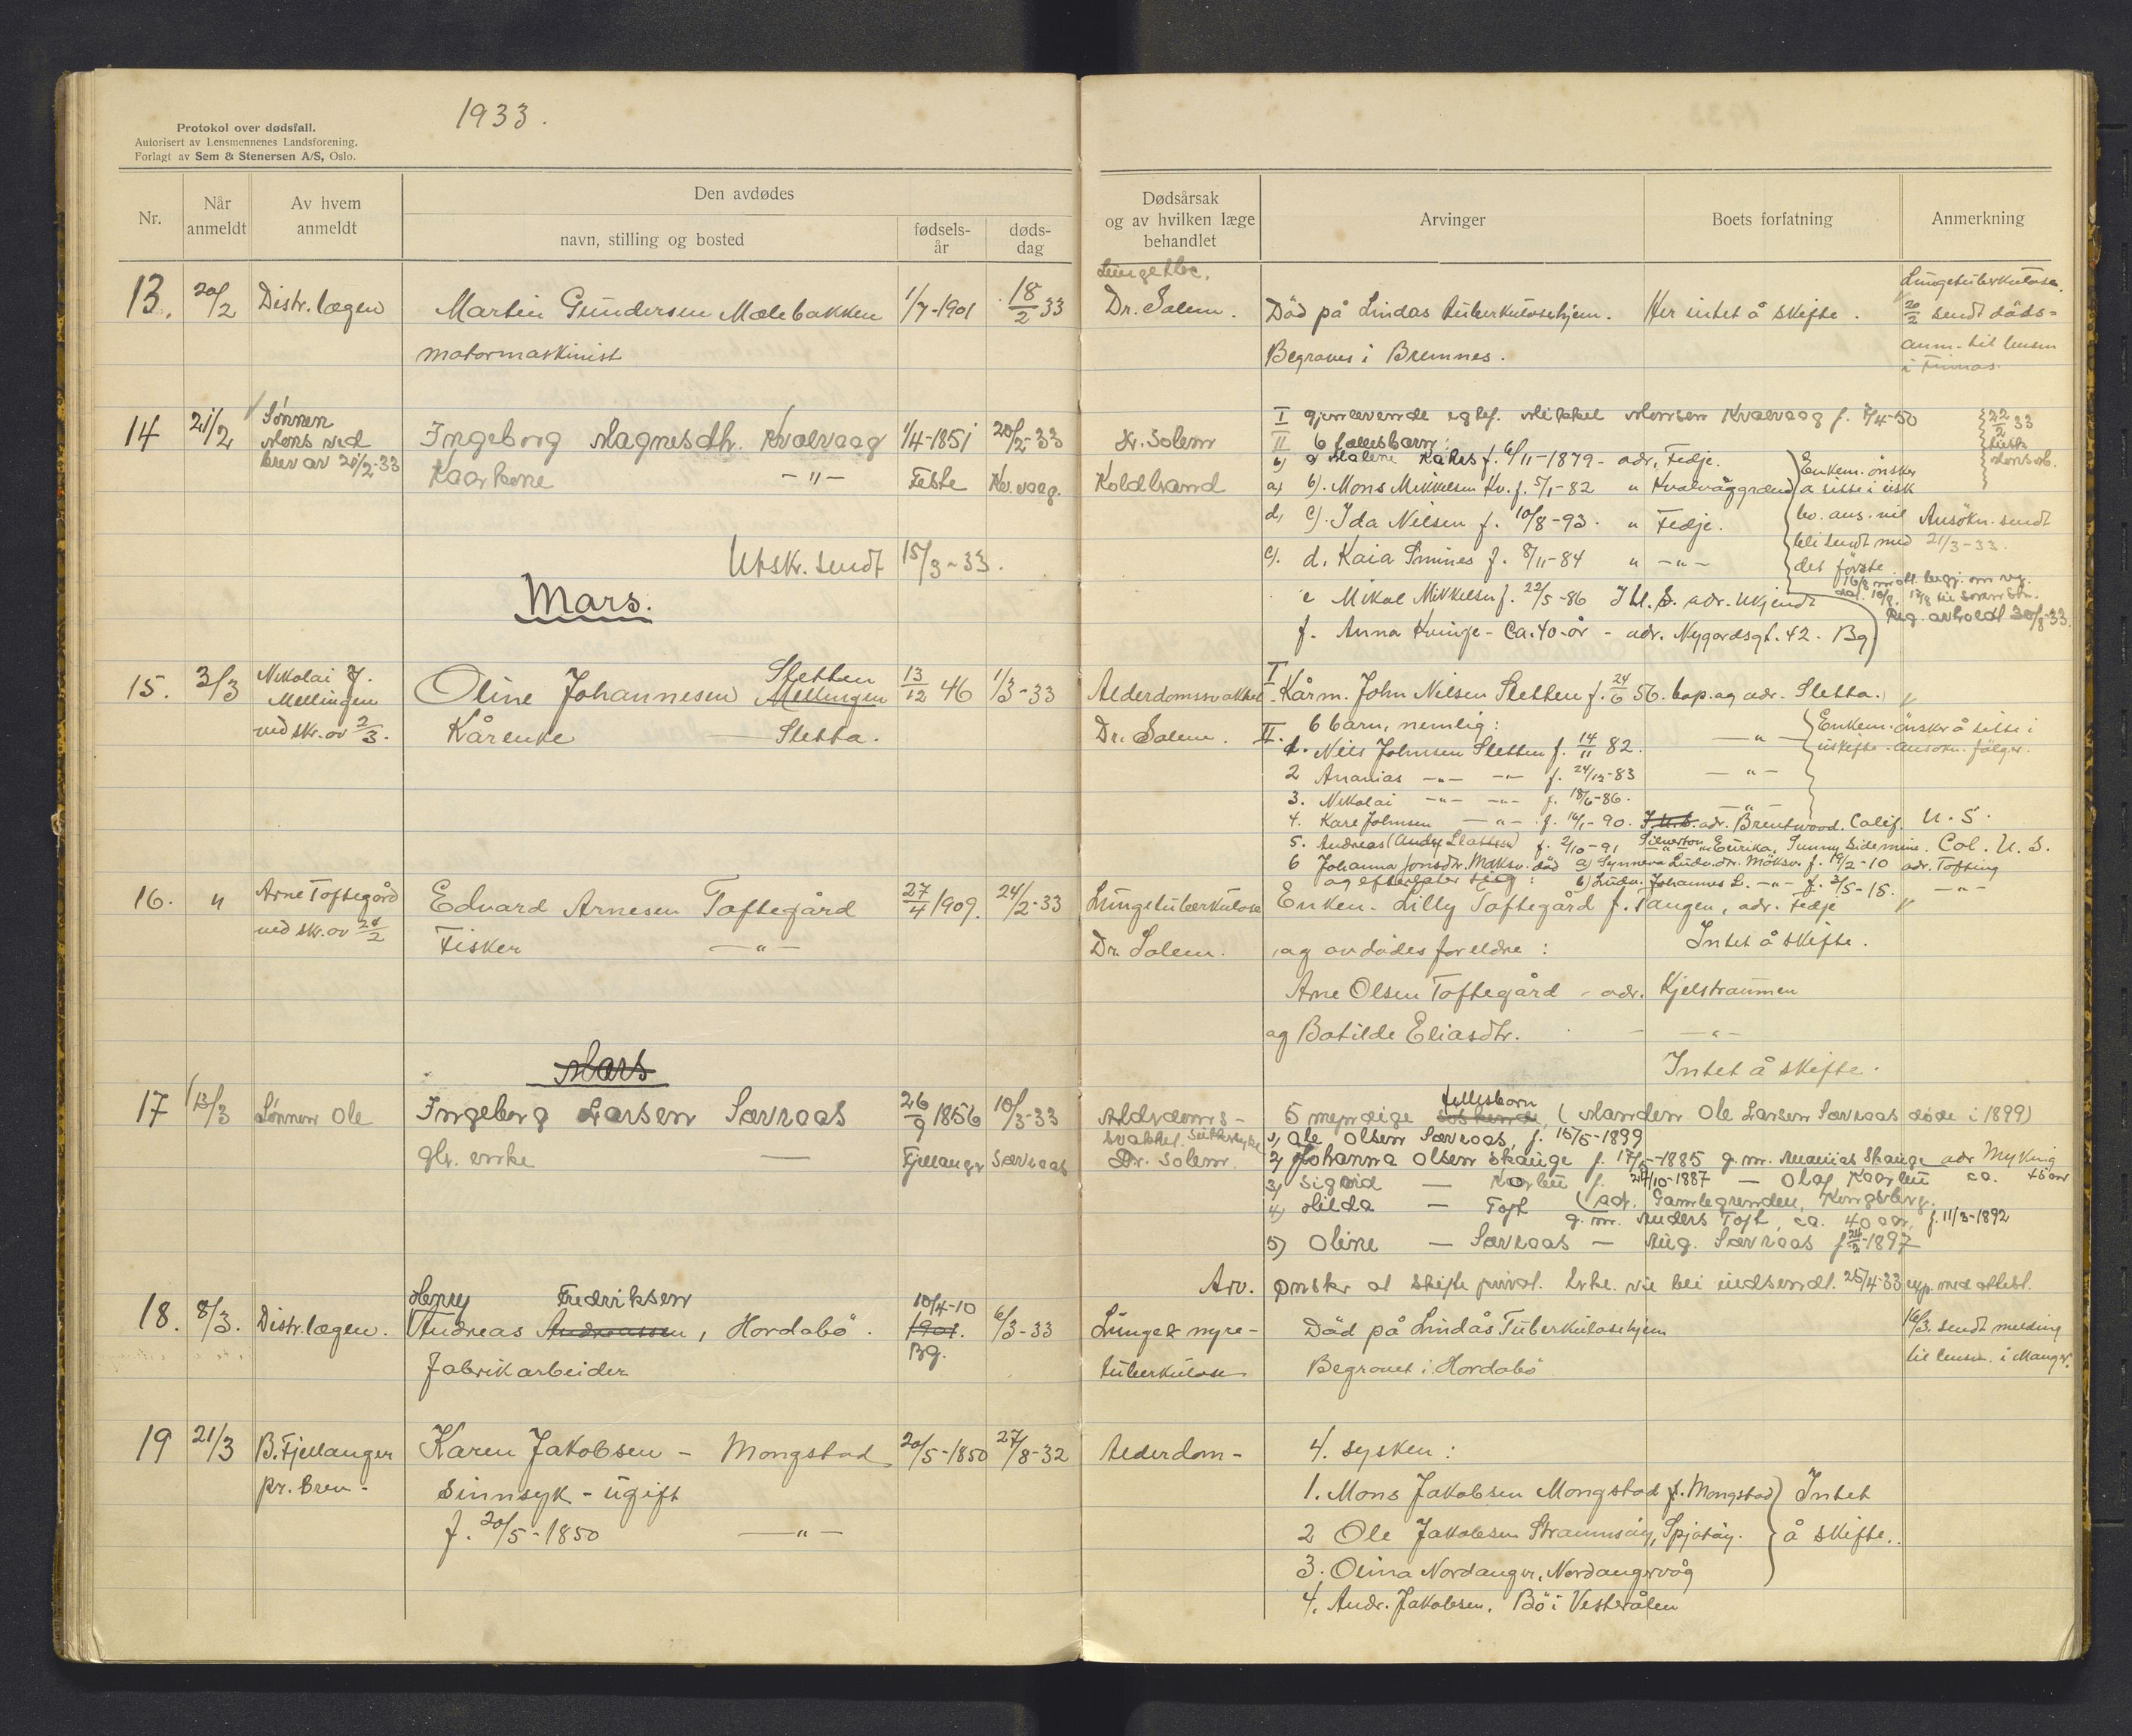 1933.
Protokol over dødsfall.
Autorisert av Lensmennenes Landsforening.
Forlagt av Sem & Stenersen A/S, Oslo.
Nr.
Når anmeldt
Av hvem anmeldt
Den avdødes
navn, stilling og bosted
fødsels-år
døds-dag
Dødsårsak og av hvilken læge behandlet
Arvinger
Boets forfatning
Anmerkning
13. 20/2 Distr.lægen Martin Gundersen Mælebakken 1/7-1901 18/2 33
motormaskinist
Lungetbc.
Dr. Solem. Död på Lindås tuberkulosehjem. Her intet å skifte.
Begraves i Bremnes.
Lungetuberkulose.
20/2 sendt döds=
anm. til lensm
i Finnås.
14 21/2 Sönnen
Mons ved
brev av 20/2-33
Ingeborg Magnesdtr. Kvalvaag 1/4-1851 20/2-33
Kaarkone -"- Feste Kv.vaag.
Utskr. sendt 15/3-33.
Dr. Solem
Koldbrand
I gjenlevende egtef. Mikkel Monsen Kvalvaag f. 7/4-50
II 6 fællesbarn:
b) a Malene Kåhrs f. 6/11-1879 - adr. Fedje.
a) b). Mons Mikkelsen Kv. f. 5/1-82 " Kvalvåggrænd
d, c). Ida Nilsen f. 10/8-93. " Fedje.
c). d. Kaia f. 8/11-84 " -"-
e Mikal Mikkelsen f. 22/5-86 adr. ukjendt
f. Anna Kvinge - Ca. 40 år - adr. Nygårdsgt. 42. Bg
Enkem. ønsker
å sitte i usk
bo. ans. vil
bli sendt med
det förste
22/2 33
Ansökn. sendt
21/3-33.
Reg. avholdt 30/8-33.
Mars.
15. 3/3 Nikolai J.
Mellingen
ved skr. av 2/3.
Oline Johannesen Mellingen Sletten 13/12 46 1/3-33
Kårenke Sletta.
Alderdomssvakhet
Dr. Solem.
I. Kårm. John Nilsen Sletten f. 24/6 56. bop. og adr. Sletta.
II. 6 barn, nemlig:
1. Nils Johnsen Sletten f. 14/11 82. -"-
2 Ananias -"- -"- f. 24/12-83 -"-
3. Nikolai -"- -"- f. 18/6-86. -"-
4. Kare Johnsen -"- f. 16/1-90. adr. Brentwood. Calif. U. S.
5. Andreas (Andy Slatten) f. 2/10-91 Silverton Eurika, Sunny Side mine. Col. U. S.
6 Johanna Jonsdtr. död a) Synneva Ludv.dtr. f. 19/2-10 adr. Tofting
og efterlater sig: b) Ludv. Johannes L. -"- f. 3/5-15. -"-
Enkem. önsker å sitte i
uskifte. Ansökn. fölger.
16. " Arne Toftegård
ved skr. av 28/2
Edvard Arnesen Toftegård 27/4 1909. 24/2-33
Fisker -"-
Lungetuberkulose
Dr. Solem.
Enken. Lilly Toftegård f. Tangen, adr. Fedje
og avdödes foreldre: Intet å skifte.
Arne Olsen Toftegård - adr. Kjelstraumen
og Botilde Eliasdtr. - -"-
Intet å skifte.
Mars
17 13/3 Sönnen Ole Ingeborg Larsen Sævraas 26/9 1856 10/3-33
gb. enke — Fjellanger Sævraas
Alderdoms-
svakhet.
Dr. Solem.
5 myndige söskende fellesbarn (Manden Ole Larsen Sævraas döde i 1899)
1) Ole Olsen Sævraas, f. 15/5-1899
2) Johanna Olsen Skauge f. 17/5-1885 g. m. Ananias Skauge adr Myking
3) Sigrid — Kaarbu f. 24/10-1887 — Olaf Kaarbu ca. 45 aar
4) Hilda — Toft (adr. Gamlegrenden, Kongsberg.
g. m. Anders Toft, ca. 40 aar, f. 11/3-1892
5) Oline — Sævraas — Aug. Sævraas f 24/2-1897
Arv. Ønsker at skifte privat. Erkl. vil bli indsendt. 25/4-33 exp. med attest.
18. 8/3. Distr.lægen. Henry Fredriksen
Andreas Andreassen, Hordabö. 10/4-10 1901. Bg. 6/3-33
fabrikarbeider
Lunge & nyre-
tuberkulose
Död på Lindås Tuberkulosehjem
Begravet i Hordabö
16/3. sendt melding
til lensm. i Manger.
19 21/3 B. Fjellanger
pr. brev.
Karen Jakobsen - Mongstad 20/5-1850 27/8-32
Sinnsyk - ugift
f. 20/5-1850 -"-
Alderdom-
4. sysken:
1. Mons Jakobsen Mongstad f. Mongstad
2 Ole Jakobsen Straumsöy, Spjotöy.
3. Olina Nordanger, Nordangervåg
4. Andr. Jakobsen. Bö i Vesterålen
Intet
å skifte.